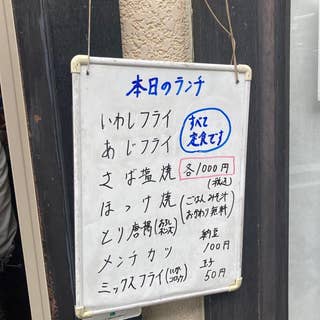 本日のランチ
いわしフライ
あじフライ
さば塩焼
ほっけ焼
とり唐揚(おろしポンズ)
メンチカツ
ミックスフライ(いか、コロッケ)
すべて
定食です
各1000円
(税込)
(ごはん みそ汁
おかわり無料)
納豆
100円
玉子
50円